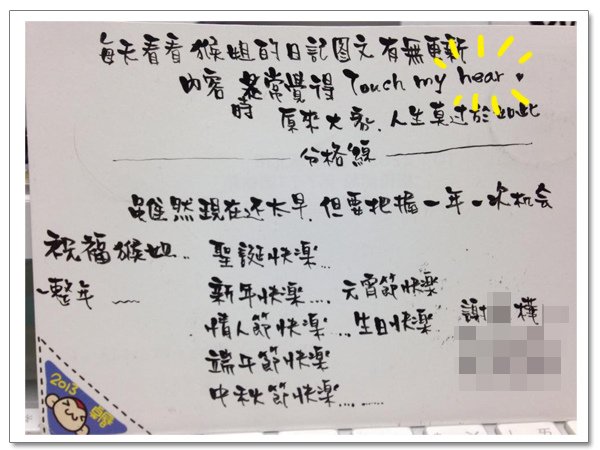 每天看看猴姐的日記圖文有無更新
內容是常覺得 Touch my hear
時
原來大家,人生莫过於如此
分格線
雖然現在还太早,但要把握一年一次机会
祝福猴姐.. 聖誕快樂...
一整年
新年快樂.... 元宵節快樂
情人節快樂... 生日快樂
謝 樺
端午節快樂
中秋節快樂......
2013